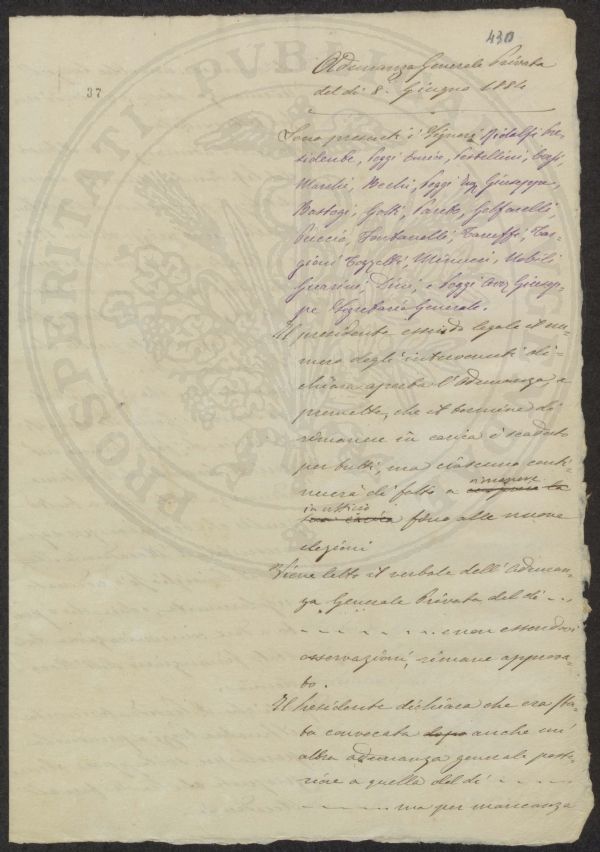 430
37
PROSPERITATI PVBLICAE
Adunanza Generale Privata
del dì 8. Giugno 1884
Sono presenti i Signori Ridolfi Pre-
sidente, Poggi Enrico, Pestellini,
Marchi, Bechi, Poggi Giuseppe,
Bastogi, Gotti, Pareto, Golfarelli,
Puccio, Fontanelli, Taruffi, Tar-
gioni Tozzetti, Minucci, Nobili
Guarini, Dini, e Poggi Giusep-
pe Segretario Generale.
Il presidente essendo legale il nu-
mero degli intervenuti di-
chiara aperta l'Adunanza e
premette, che il termine di
rimanere in carica è scaduto
per tutti, ma ciascuno conti-
nuerà di fatto a rimanere
in ufficio fino alle nuove
elezioni
Viene letto il verbale dell'Adunan-
za Generale Privata del dì ...
. . . . . . . . e non essendovi
osservazioni, rimane approva-
to.
Il Presidente dichiara che era sta-
ta convocata dopo anche un'
altra adunanza generale poste-
riore a quella del dì . . . . .
. . . . . . . . ma per mancanza